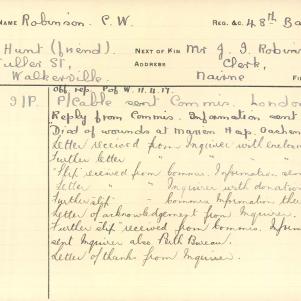 Name Robinson. C. W. Reg. &c. 48th Ba
Hunt (friend). Next of Kin Mr J. I. Robin
Fuller St, Address Clerk,
Walkerville. Nairne Fi
Off. rep. PofW. 11.4.17.
P/Cable sent Commis. London
Reply from Commis. Information sent
"Died of wounds at Marien Hsp. Aachen
Letter received from Inquirer with enclos
Further letter " " "
"Slip" received from Commis. Information sen
Letter " " Inquirer with donation
Further slip - Commis Information the
Letter of acknowledgement from Inquirer.
Further "slip" received from Commis. Inform
sent Inquirer also Perth Bureau.
Letter of thanks from Inquirer.